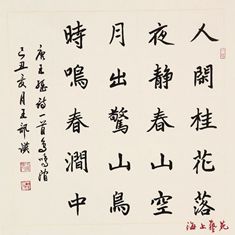 人閑桂花落
夜静春山空
月出驚山鳥
時鳴春澗中
唐王維詩一首鳥鳴澗
己丑亥月王部漢
海上藝苑